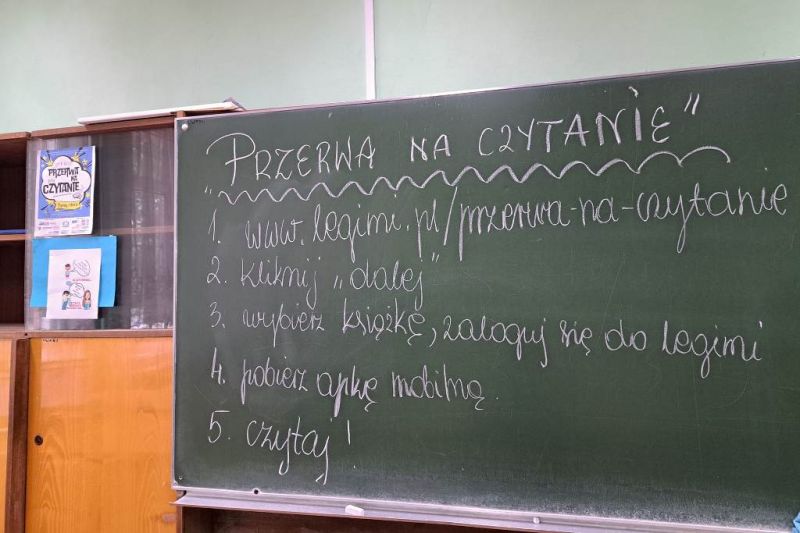 „PRZERWA NA CZYTANIE"
1. www.legimi.pl/przerwa-na-czytanie
2. kliknij „dalej"
3. wybierz książkę, zaloguj się do legimi
4. pobierz apkę mobilną.
5. czytaj!
PRZERWA
NA
CZYTANIE